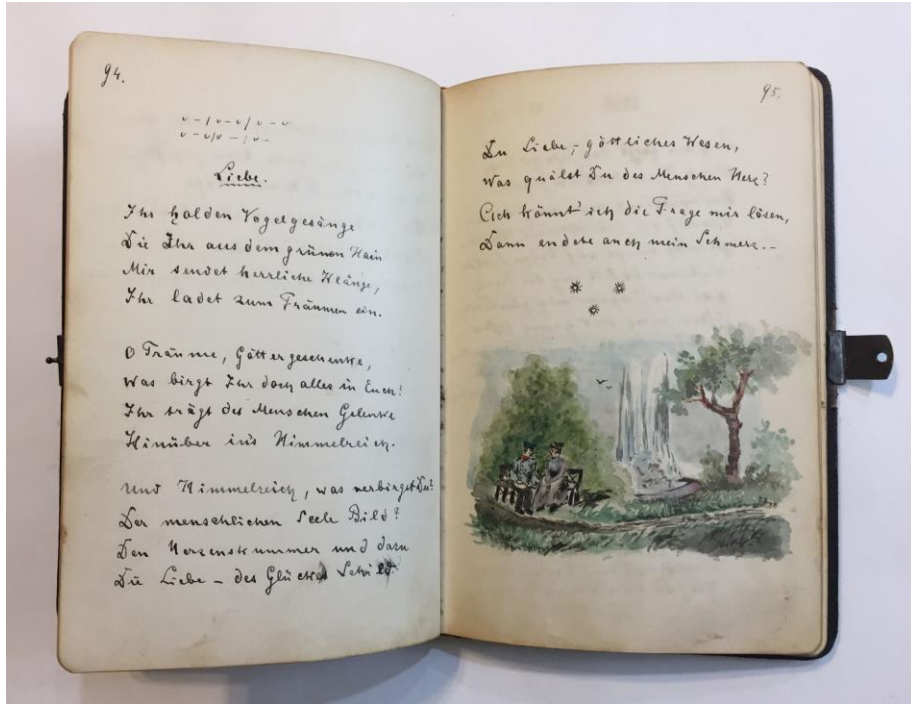 94.
Liebe.
Ihr holden Vogelgesänge
Die Ihr aus dem grünen Hain
Mir sendet herrliche Klänge,
Ihr ladet zum Träumen ein.
O Träume, Göttergeschenke,
Was birgt Ihr doch alles in Euch!
Ihr trägt des Menschen Gelenke
Hinüber in's Himmelreich.
Und Himmelreich, was verbirgst Du?
Der menschlichen Seele Bild?
Den Herzenskummer und dazu
Die Liebe – des Glückes Schild.
95.
Du Liebe, göttliches Wesen,
Was quälst Du des Menschen Herz?
Ach könnt' ich die Frage mir lösen,
Dann endete auch mein Schmerz. –